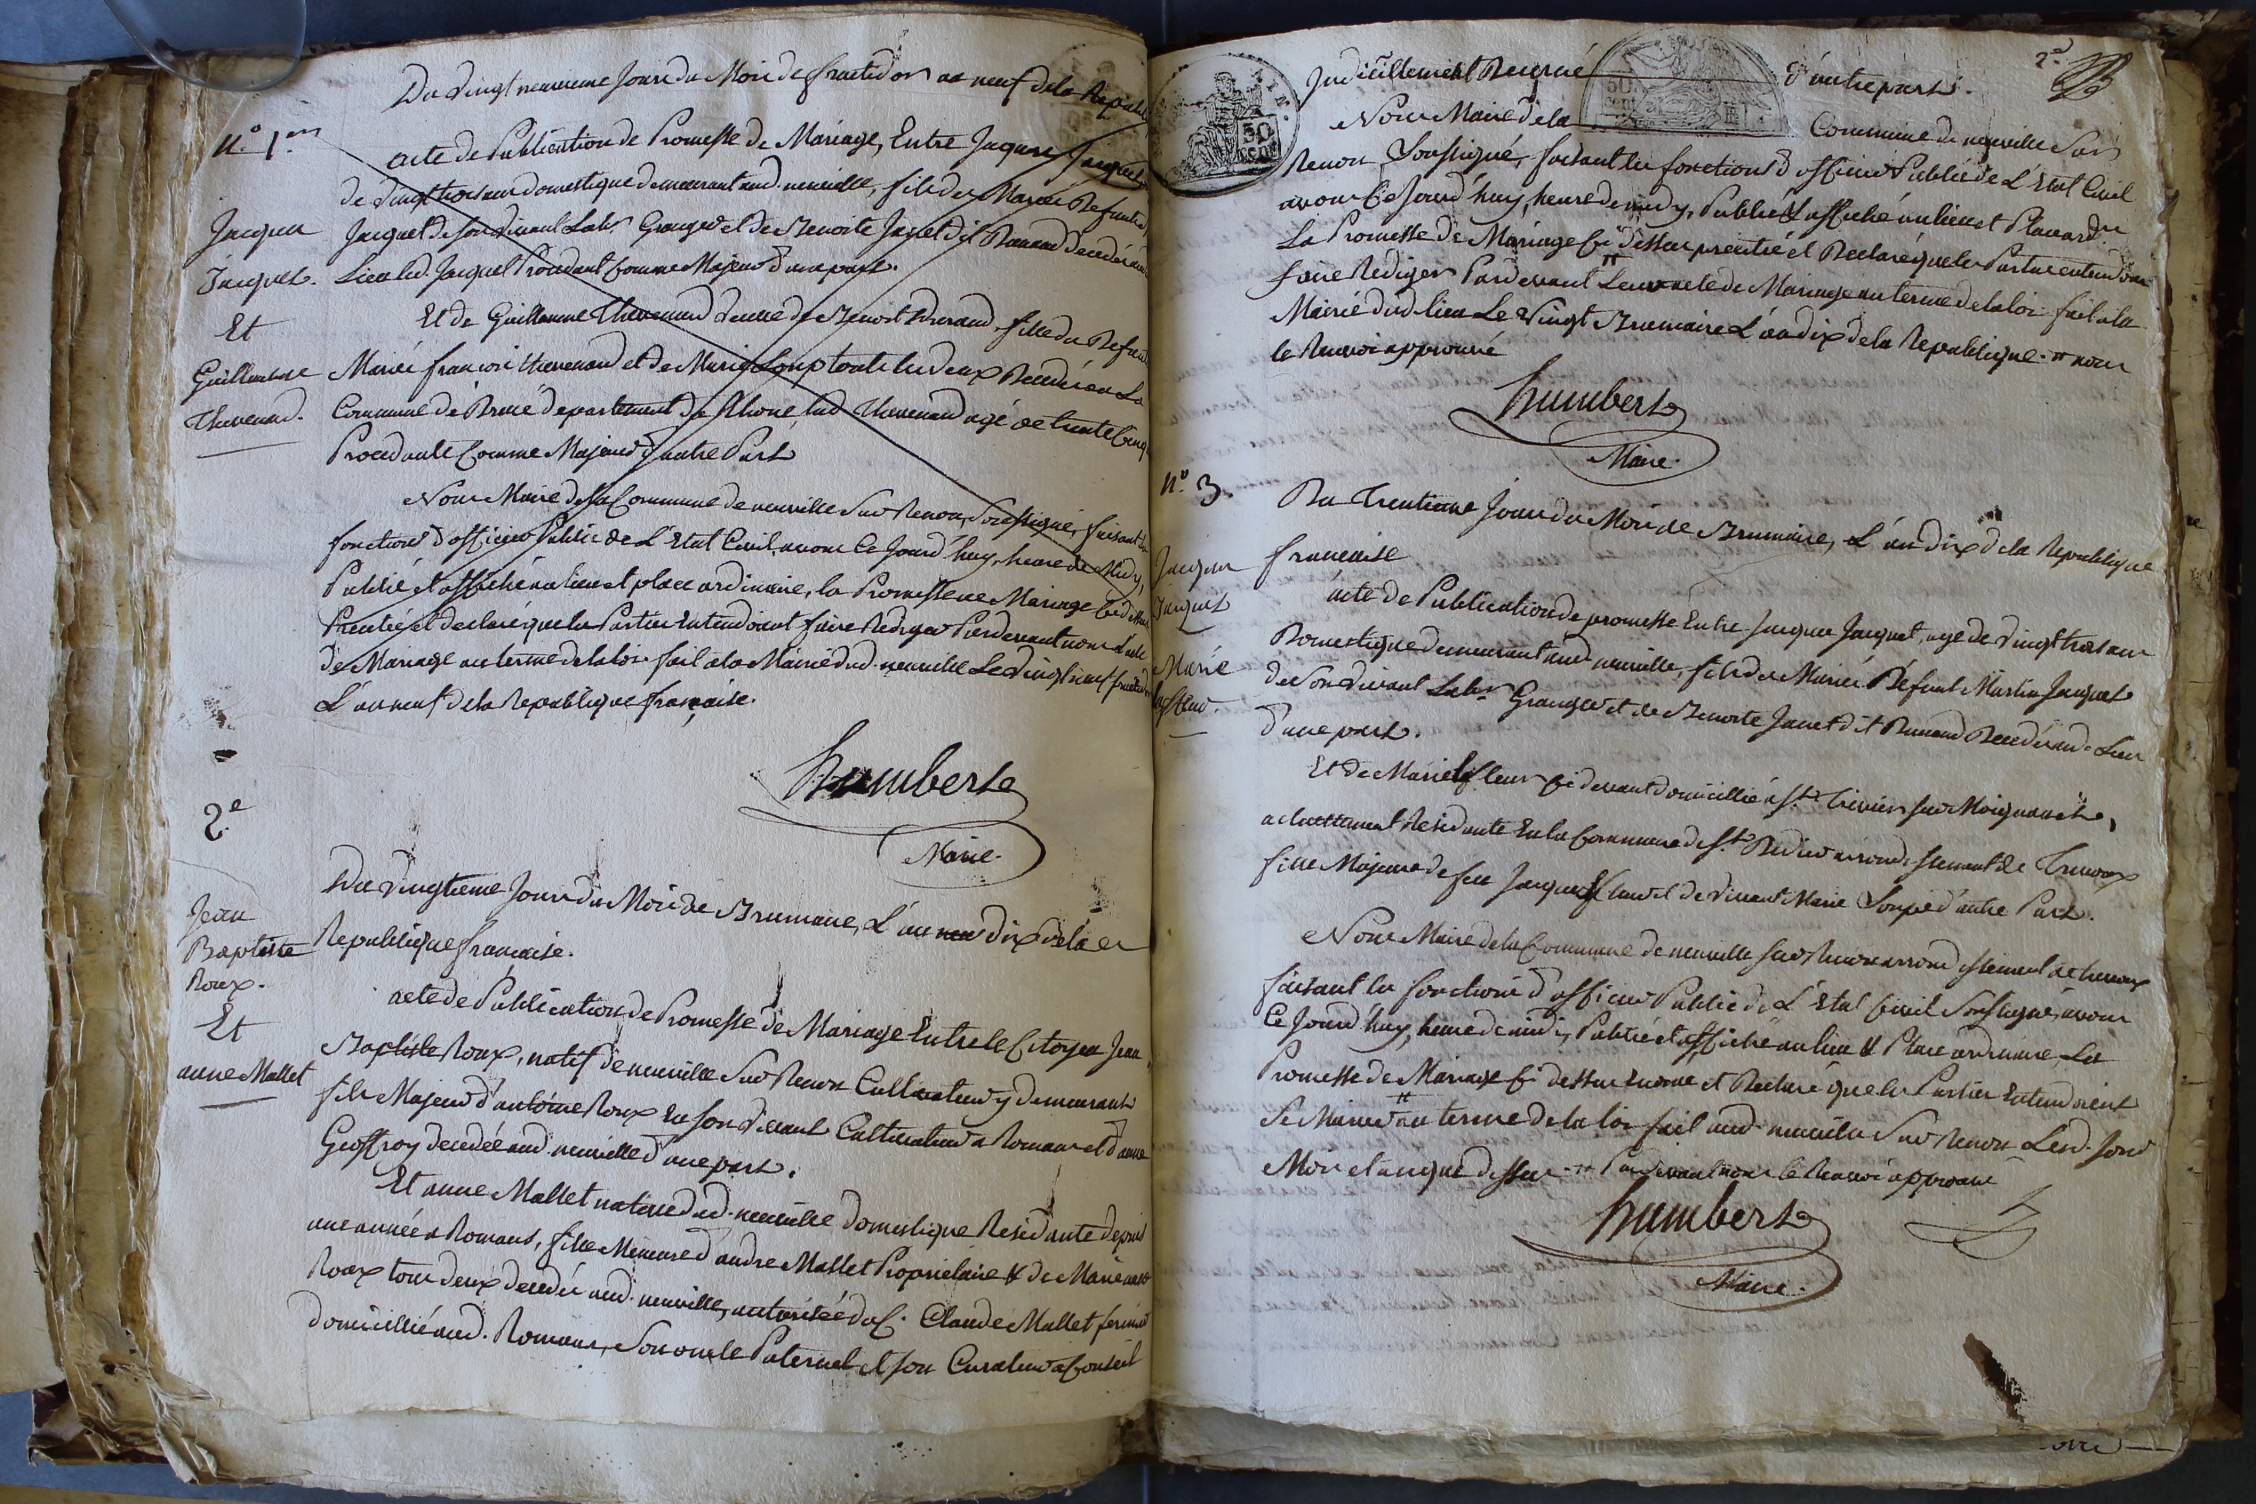 Du vingt neuvieme Jour du Mois de fructidor an neuf de la Republ
N.º 1.er
acte de Publication de Promesse de Mariage, Entre Jacques Jacquet
de vingt trois ans domestique demeurant aud. neuville, fils des Mariés Defunts
Jacques
Jacquet.
Et
Guillemme
Thevenard.
Jacquet de son vivant Lab.r Granger et de Benoite Janet dit Banand Decedés aud
Lieu led. Jacquet Procedant Comme Majeur d'une part.
Et de Guillemme Thevenard Veuve de Benoit Durand, fille du Defunt
Mariés françois thevenard et de Marie Loup touts les deux Decedés en La
Commune de département du Rhone, lad. Thevenard agé de trente Cinq
Procedante Comme Majeur d'autre Part
Nous Maire de la Commune de neuville Sur Renon, Soussigné, faisant les
fonctions d'officier Public de L'Etat Civil, avons Ce Jourd'huy, heure de Midy,
Publié et affiché au lieu et place ordinaire, la Promesse de Mariage Cy dessus
et declaré que les Parties Entendoient faire Rediger Pardevant nous L'acte
de Mariage au terme de la loi fait à la Mairie dud. neuville Le Vingt neuf fructidor
L'an neuf de la Republique française.
humbert
Maire.
2.e
Jean
Baptiste
Roux.
Et
anne Mallet
Du vingtieme Jour du Mois de Brumaire, L'an dix de la
Republique française.
acte de Publication de Promesse de Mariage Entre le Citoyen Jean
Baptiste Roux, natif de neuville Sur Renon Cultivateur y demeurant
fils Majeur d'antoine Roux En son vivant Cultivateur a Romans et d'anne
Geoffroy decedée aud. neuville d'une part.
Et anne Mallet native dud. neuville domestique Residante depuis
une année a Romans, fille Mineure d'andre Mallet Proprietaire & de Marie anne
Roux tous deux decedés aud. neuville, autorisée du C. Claude Mallet fermier
domicillié aud. Romans, Son oncle Paternel et son Curateur a Conseil
2.e
Judiciellement Decerné d'autre part.
Nous Maire de la Commune de neuville Sur
Renon Soussigné, faisant les fonctions d'officier Public de L'Etat Civil
avons Ce Jourd'huy, heure de midy, Publié & affiché au lieu et Place ord.re
La Promesse de Mariage Cy dessus et Declaré que les Parties entendoient
faire Rediger Pardevant " Leur acte de Mariage au terme de la loi fait a la
Mairie dud. lieu Le Vingt Brumaire L'an dix de la Republique. " nous
le Renvoi approuvé
humbert
Maire.
N.º 3.
Jacques
Jacquet
Marie
Du Trentieme Jour du Mois de Brumaire, L'an dix de la Republique
française
acte de Publication de promesse Entre Jacques Jacquet, age de Vingt trois ans
Domestique demeurant aud. neuville, fils des Mariés Défunt Martin Jacquet
de Son Vivant Lab.r Granger et de Benoite Janet dit Banand Decedés aud. Lieu
d'une part.
Et de Marie Ci devant domicillié a S.t Trivier sur Moignans,
actuellement Residante En la Commune de S.t Didier arrondissement de Trevoux
fille Majeure de feu Jacques et de Vivant Marie d'autre Part.
Nous Maire de la Commune de neuville sur Renon arrondissement de Trevoux
faisant les fonctions d'officier Public de L'Etat Civil Soussigné, avons
Ce Jourd'huy, heure de midi, Publié et affiché au lieu & Place ordinaire La
Promesse de Mariage Ci dessus et Declaré que les Parties Entendoient
Se Marier " au terme de la loi fait aud. neuville Sur Renon Lesd. Jour
Mois et an que dessus. " Pardevant nous le Renvoi approuvé
humbert
Maire.